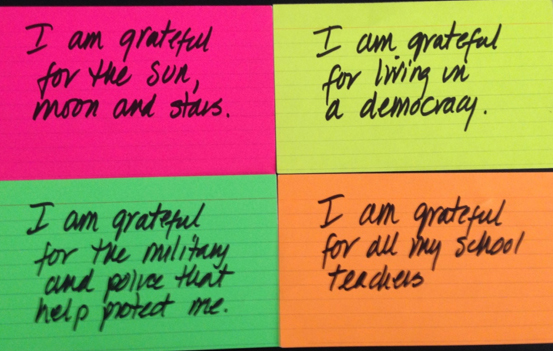 I am grateful
for the sun,
moon and stars.
I am grateful
for living in
a democracy.
I am grateful
for the military
and police that
help protect me.
I am grateful
for all my school
teachers